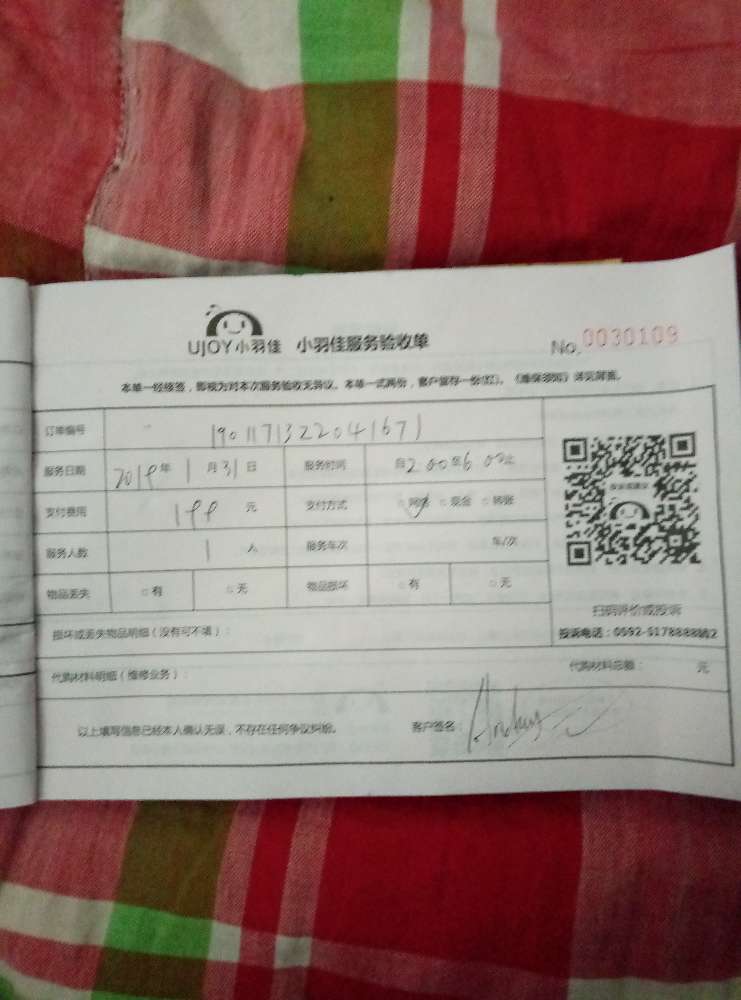 UJOY小羽佳 小羽佳服务验收单 No. 0030109
本单一经修签，即视为对本次服务验收无异议。本单一式两份，客户留存一份(红)。《维保须知》详见背面。
订单编号 1901171322041671
服务日期 2019年1月31日 服务时间 自2:00至6:00止
支付费用 199元 支付方式 网络 现金 转账
服务人数 1人 服务车次 车/次
物品丢失 有 无 物品损坏 有 无
扫码评价或投诉
损坏或丢失物品明细（没有可不填）：
投诉电话：0592-5178888转2
代购材料明细（维修业务）： 代购材料总额： 元
以上填写信息已经本人确认无误，不存在任何争议纠纷。 客户签名：